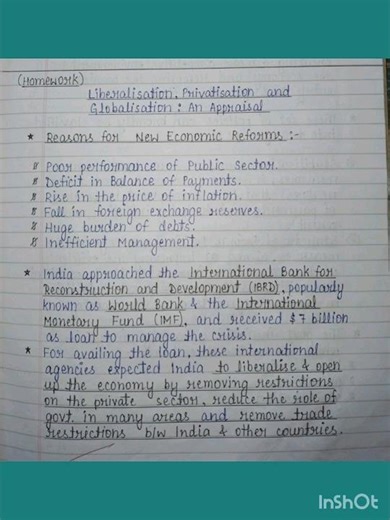 (Homework)
Liberalisation, Privatisation and
Globalisation : An Appraisal
* Reasons for New Economic Reforms :-
Poor performance of Public Sector.
Deficit in Balance of Payments.
Rise in the price of inflation.
Fall in foreign exchange reserves.
Huge burden of debts.
Inefficient Management.
* India approached the International Bank for
Reconstruction and Development (IBRD), popularly
known as World Bank & the International
Monetary Fund (IMF), and received $7 billion
as loan to manage the crisis.
* For availing the loan, these international
agencies expected India to liberalise & open
up the economy by removing restrictions
on the private sector, reduce the role of
govt. in many areas and remove trade
restrictions b/w India & other countries.
InShOt